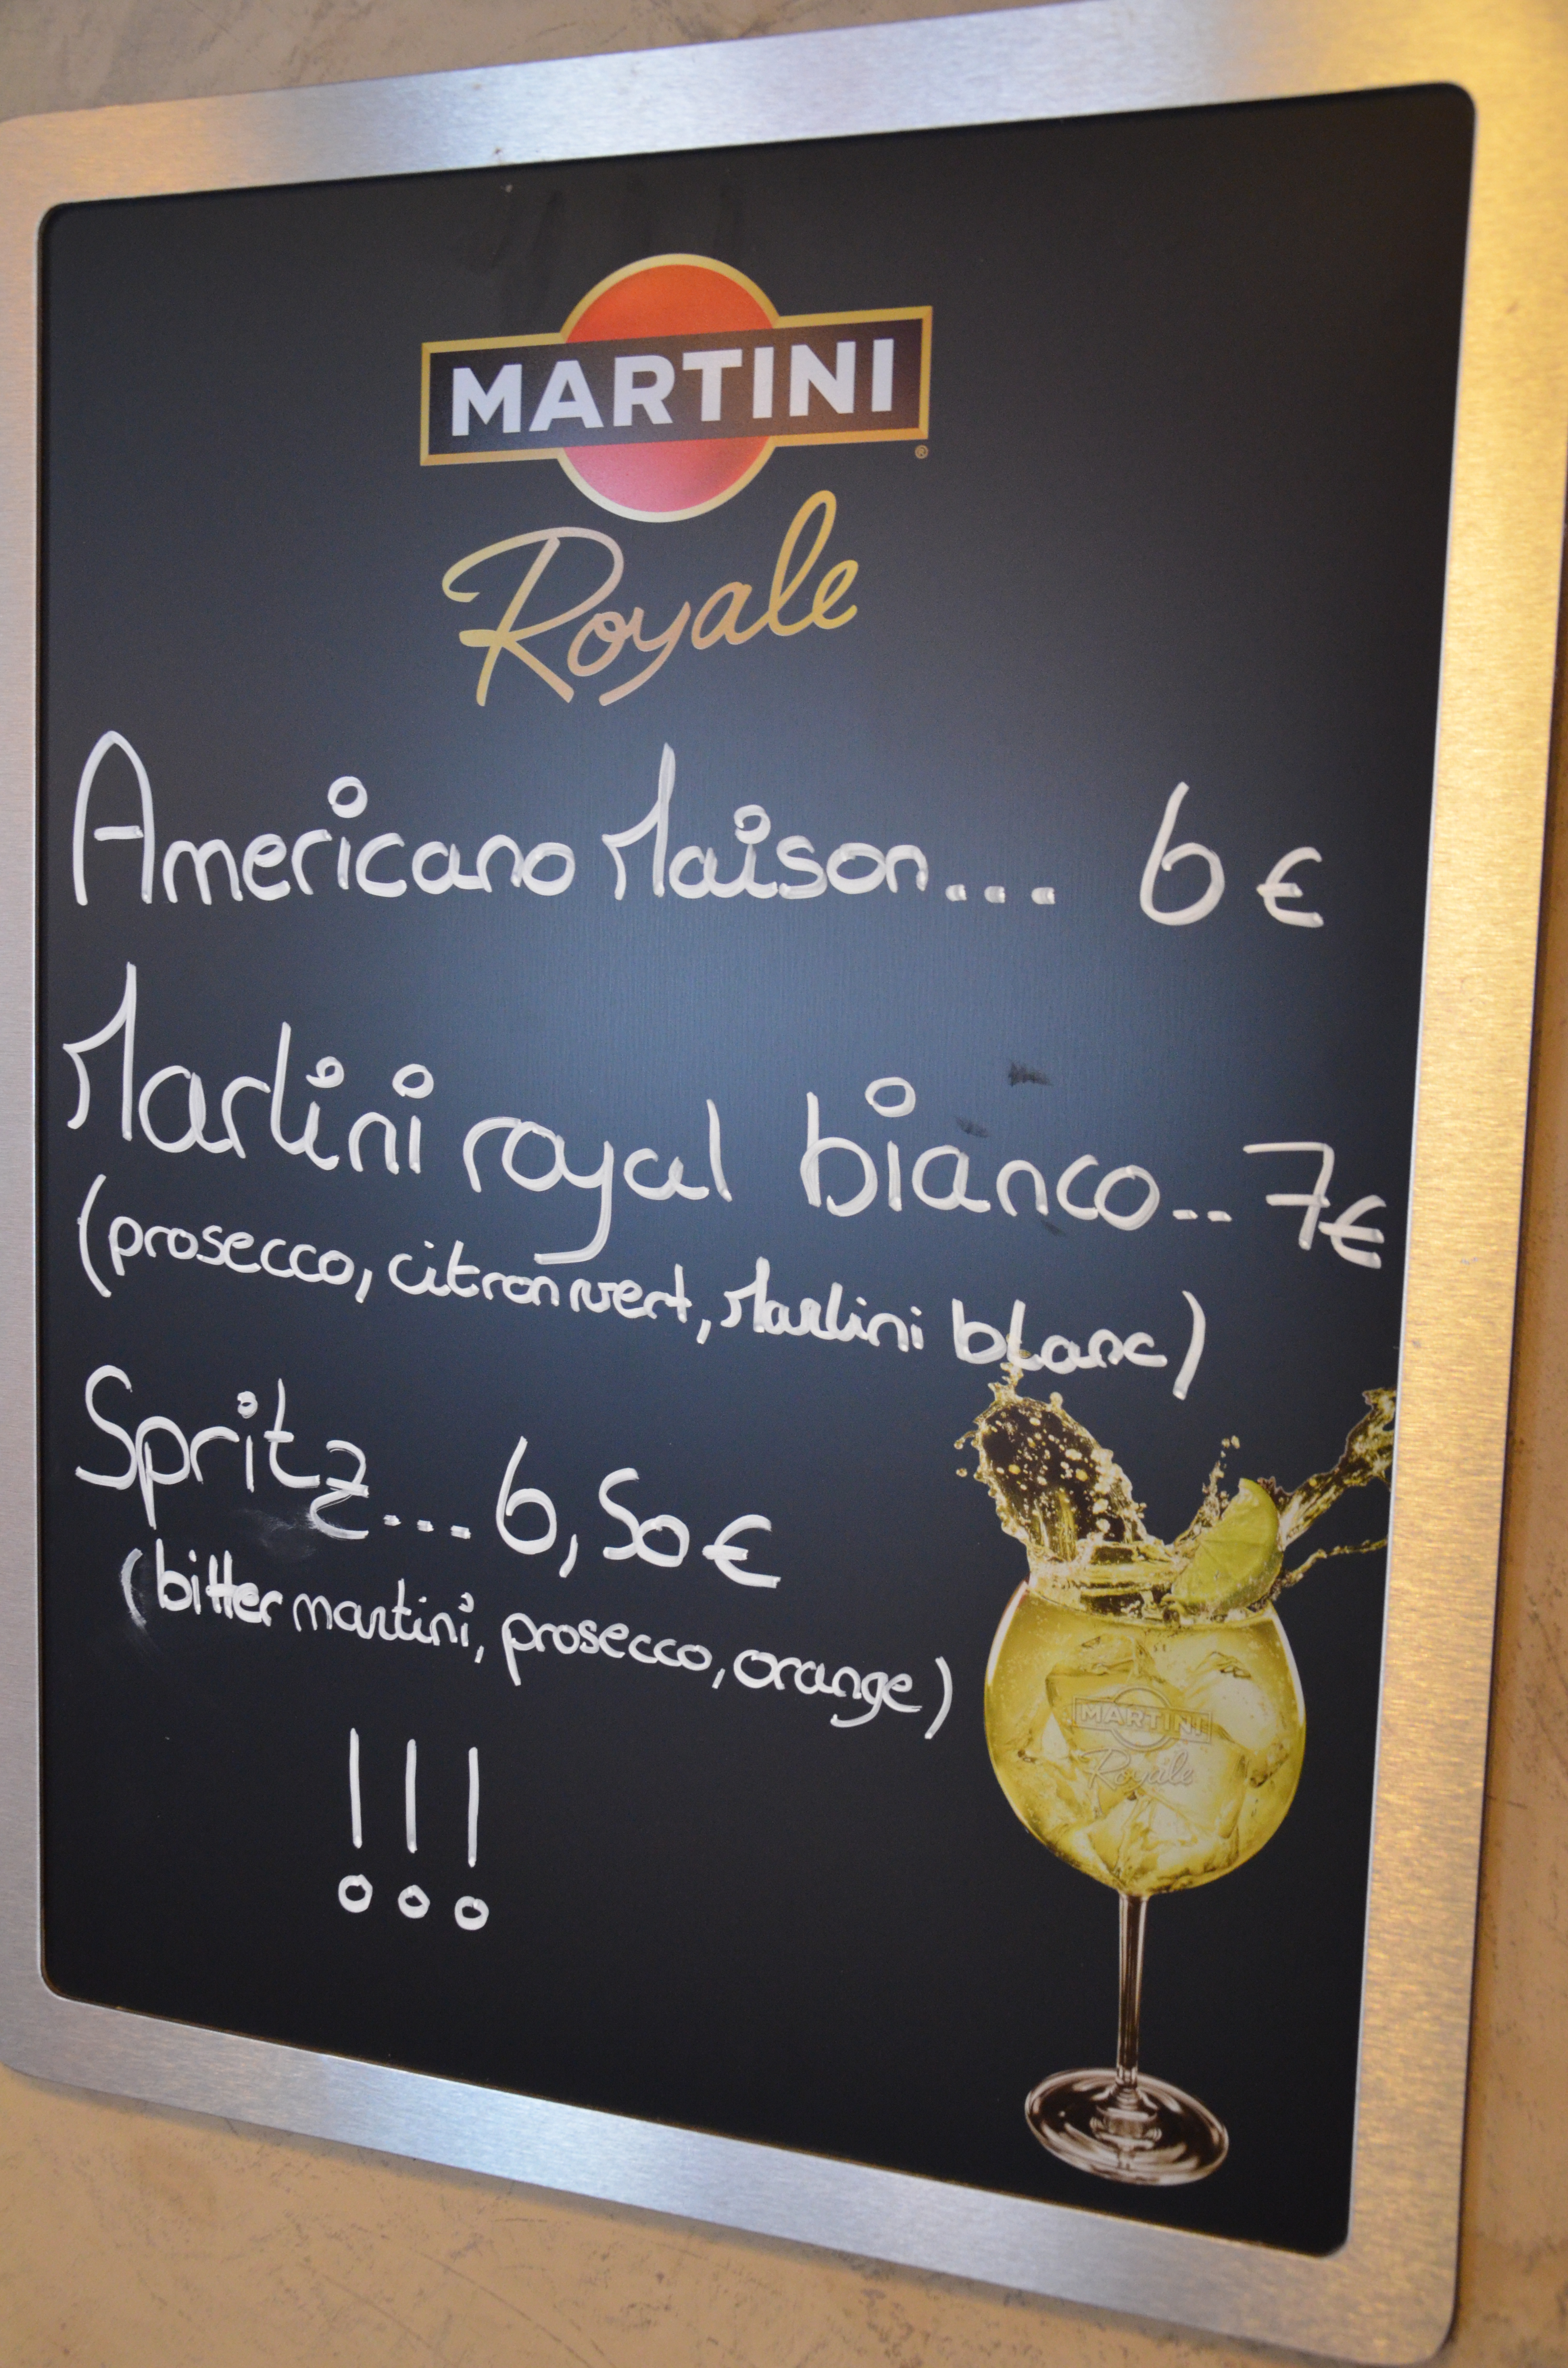 MARTINI
Royale
Americano Maison... 6€
Martini royal bianco... 7€
(prosecco, citron vert, Martini blanc)
Spritz... 6,50€
(bitter martini, prosecco, orange)
!!!
MARTINI
Royale